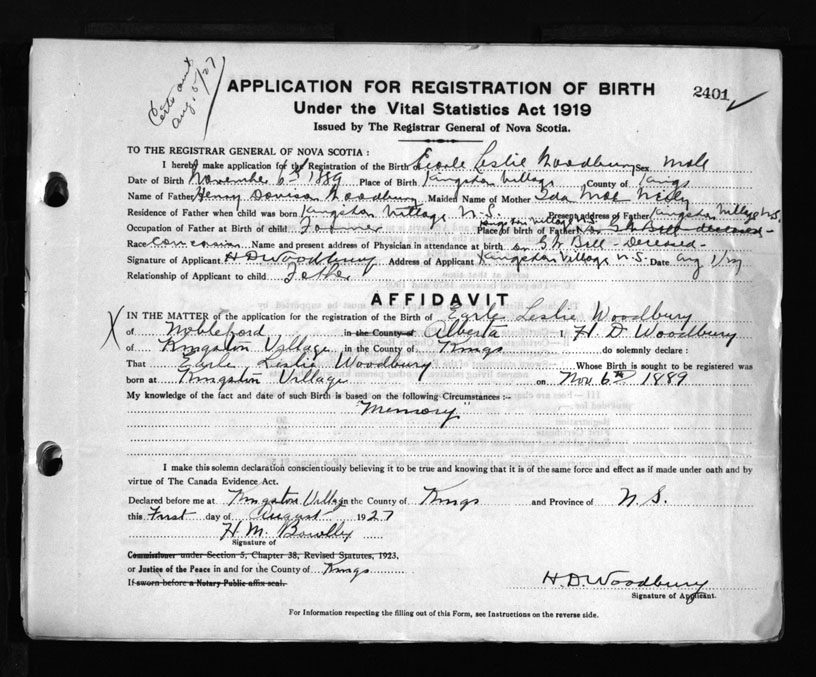 Certs sent
Aug. 5/27
APPLICATION FOR REGISTRATION OF BIRTH
2401
Under the Vital Statistics Act 1919
Issued by The Registrar General of Nova Scotia.
TO THE REGISTRAR GENERAL OF NOVA SCOTIA :
I hereby make application for the Registration of the Birth of Earle Leslie Woodbury Sex Male
Date of Birth November 6th 1889 Place of Birth Kingston Village County of Kings
Name of Father Henry Woodbury Maiden Name of Mother Ida Mae Neily
Residence of Father when child was born Kingston Village N.S. Present address of Father Kingston Village N.S.
Occupation of Father at Birth of child Farmer Place of birth of Father Kingston Village N.S. Dr G W Bill - deceased -
Race Concasin Name and present address of Physician in attendance at birth Dr G W Bill - Deceased -
Signature of Applicant H D Woodbury Address of Applicant Kingston Village N.S. Date Aug 1/27
Relationship of Applicant to child Father
AFFIDAVIT
X IN THE MATTER of the application for the registration of the Birth of Earle Leslie Woodbury
of Nobleford in the County of Alberta I H. D Woodbury
of Kingston Village in the County of Kings do solemnly declare :
That Earle Leslie Woodbury Whose Birth is sought to be registered was
born at Kingston Village on Nov 6th 1889
My knowledge of the fact and date of such Birth is based on the following Circumstances :–
"Memory"
I make this solemn declaration conscientiously believing it to be true and knowing that it is of the same force and effect as if made under oath and by
virtue of The Canada Evidence Act.
Declared before me at Kingston Village in the County of Kings and Province of N.S.
this First day of August 1927
H M.
Signature of
Commissioner under Section 5, Chapter 38, Revised Statutes, 1923,
or Justice of the Peace in and for the County of Kings
If sworn before a Notary Public affix seal.
H. D. Woodbury
Signature of Applicant.
For Information respecting the filling out of this Form, see Instructions on the reverse side.